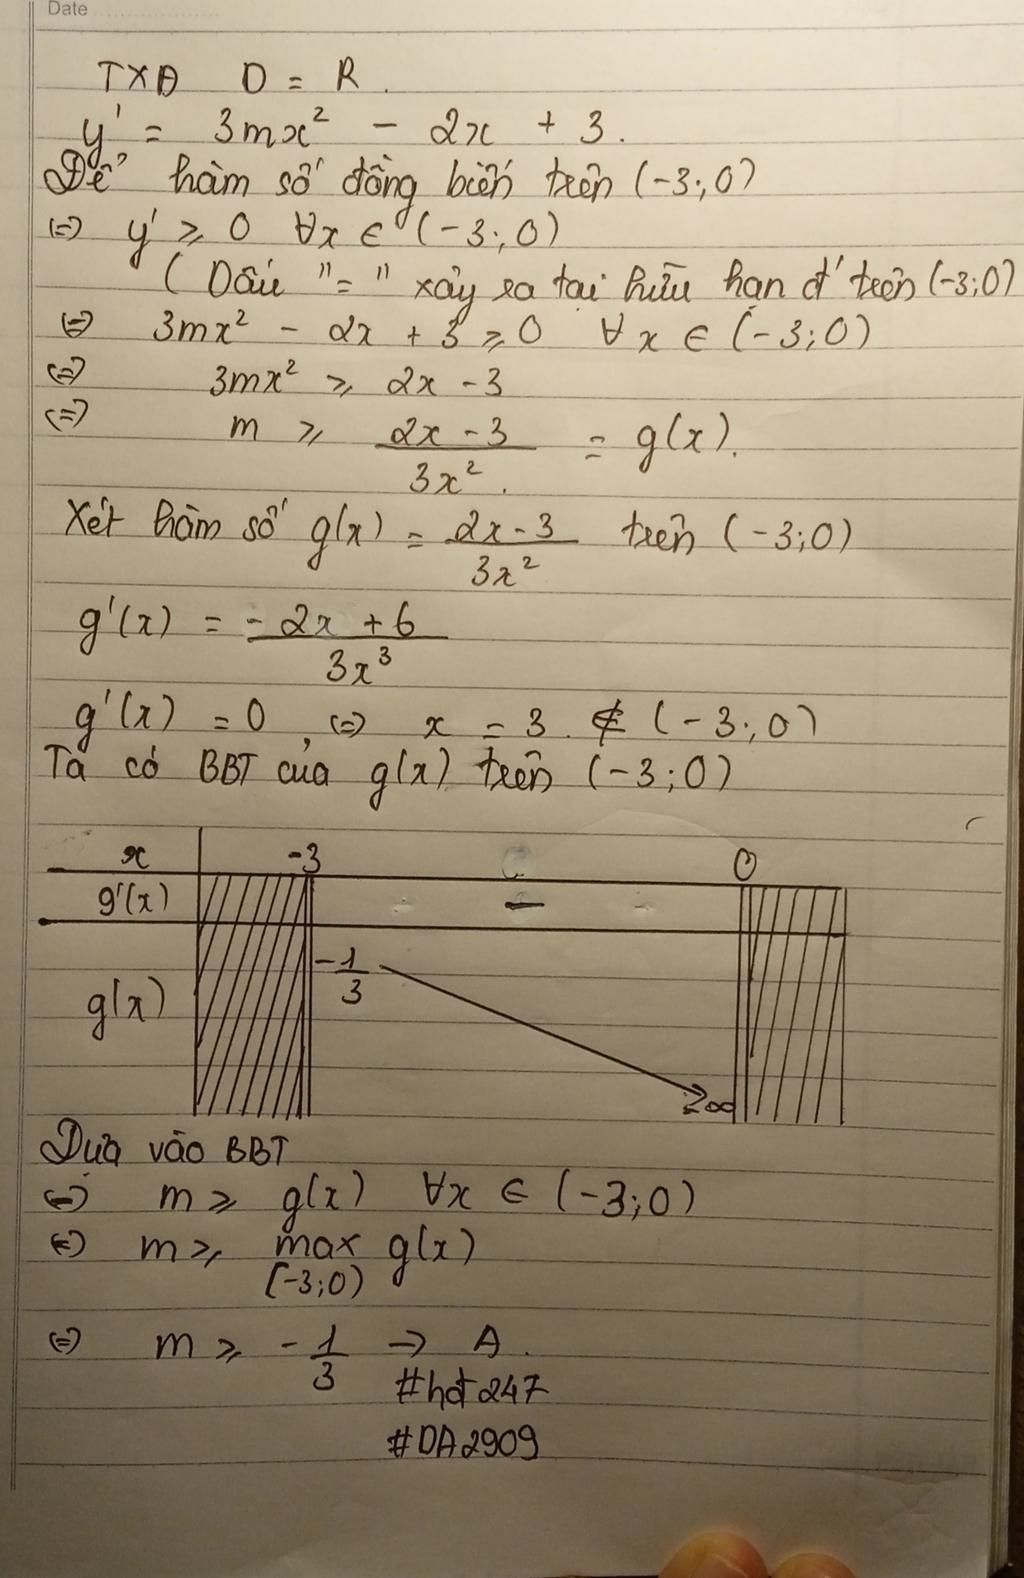 Date
TXĐ D = R.
y' = 3mx² - 2x + 3.
Để hàm số đồng biến trên (-3;0)
(=) y' ≥ 0 ∀x ∈ (-3;0)
( Dấu "=" xảy ra tại hữu hạn đ' trên (-3;0)
(=) 3mx² - 2x + 3 ≥ 0 ∀x ∈ (-3;0)
(=) 3mx² ≥ 2x - 3
(=) m ≥ (2x - 3)/(3x²) = g(x).
Xét hàm số g(x) = (2x - 3)/(3x²) trên (-3;0)
g'(x) = (-2x + 6)/(3x³)
g'(x) = 0 (=) x = 3 ∉ (-3;0)
Ta có BBT của g(x) trên (-3;0)
x -3 0
g'(x) -
g(x) -1/3 -∞
Dựa vào BBT
(=) m ≥ g(x) ∀x ∈ (-3;0)
(=) m ≥ max g(x)
[-3;0)
(=) m ≥ -1/3 → A.
#hđ247
#DA2909